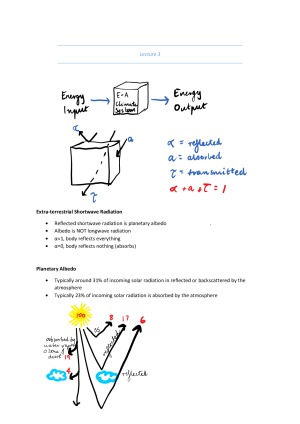 Lecture 3
Energy Input
E-A Climate System
Energy Output
α
a
τ
α = reflected
a = absorbed
τ = transmitted
α + a + τ = 1
Extra-terrestrial Shortwave Radiation
• Reflected shortwave radiation is planetary albedo
• Albedo is NOT longwave radiation
• α=1, body reflects everything
• α=0, body reflects nothing (absorbs)
Planetary Albedo
• Typically around 31% of incoming solar radiation in reflected or backscattered by the
atmosphere
• Typically 23% of incoming solar radiation is absorbed by the atmosphere
100
8 17 6
absorbed by
water
ozone &
dust 19
4
reflected
reflected